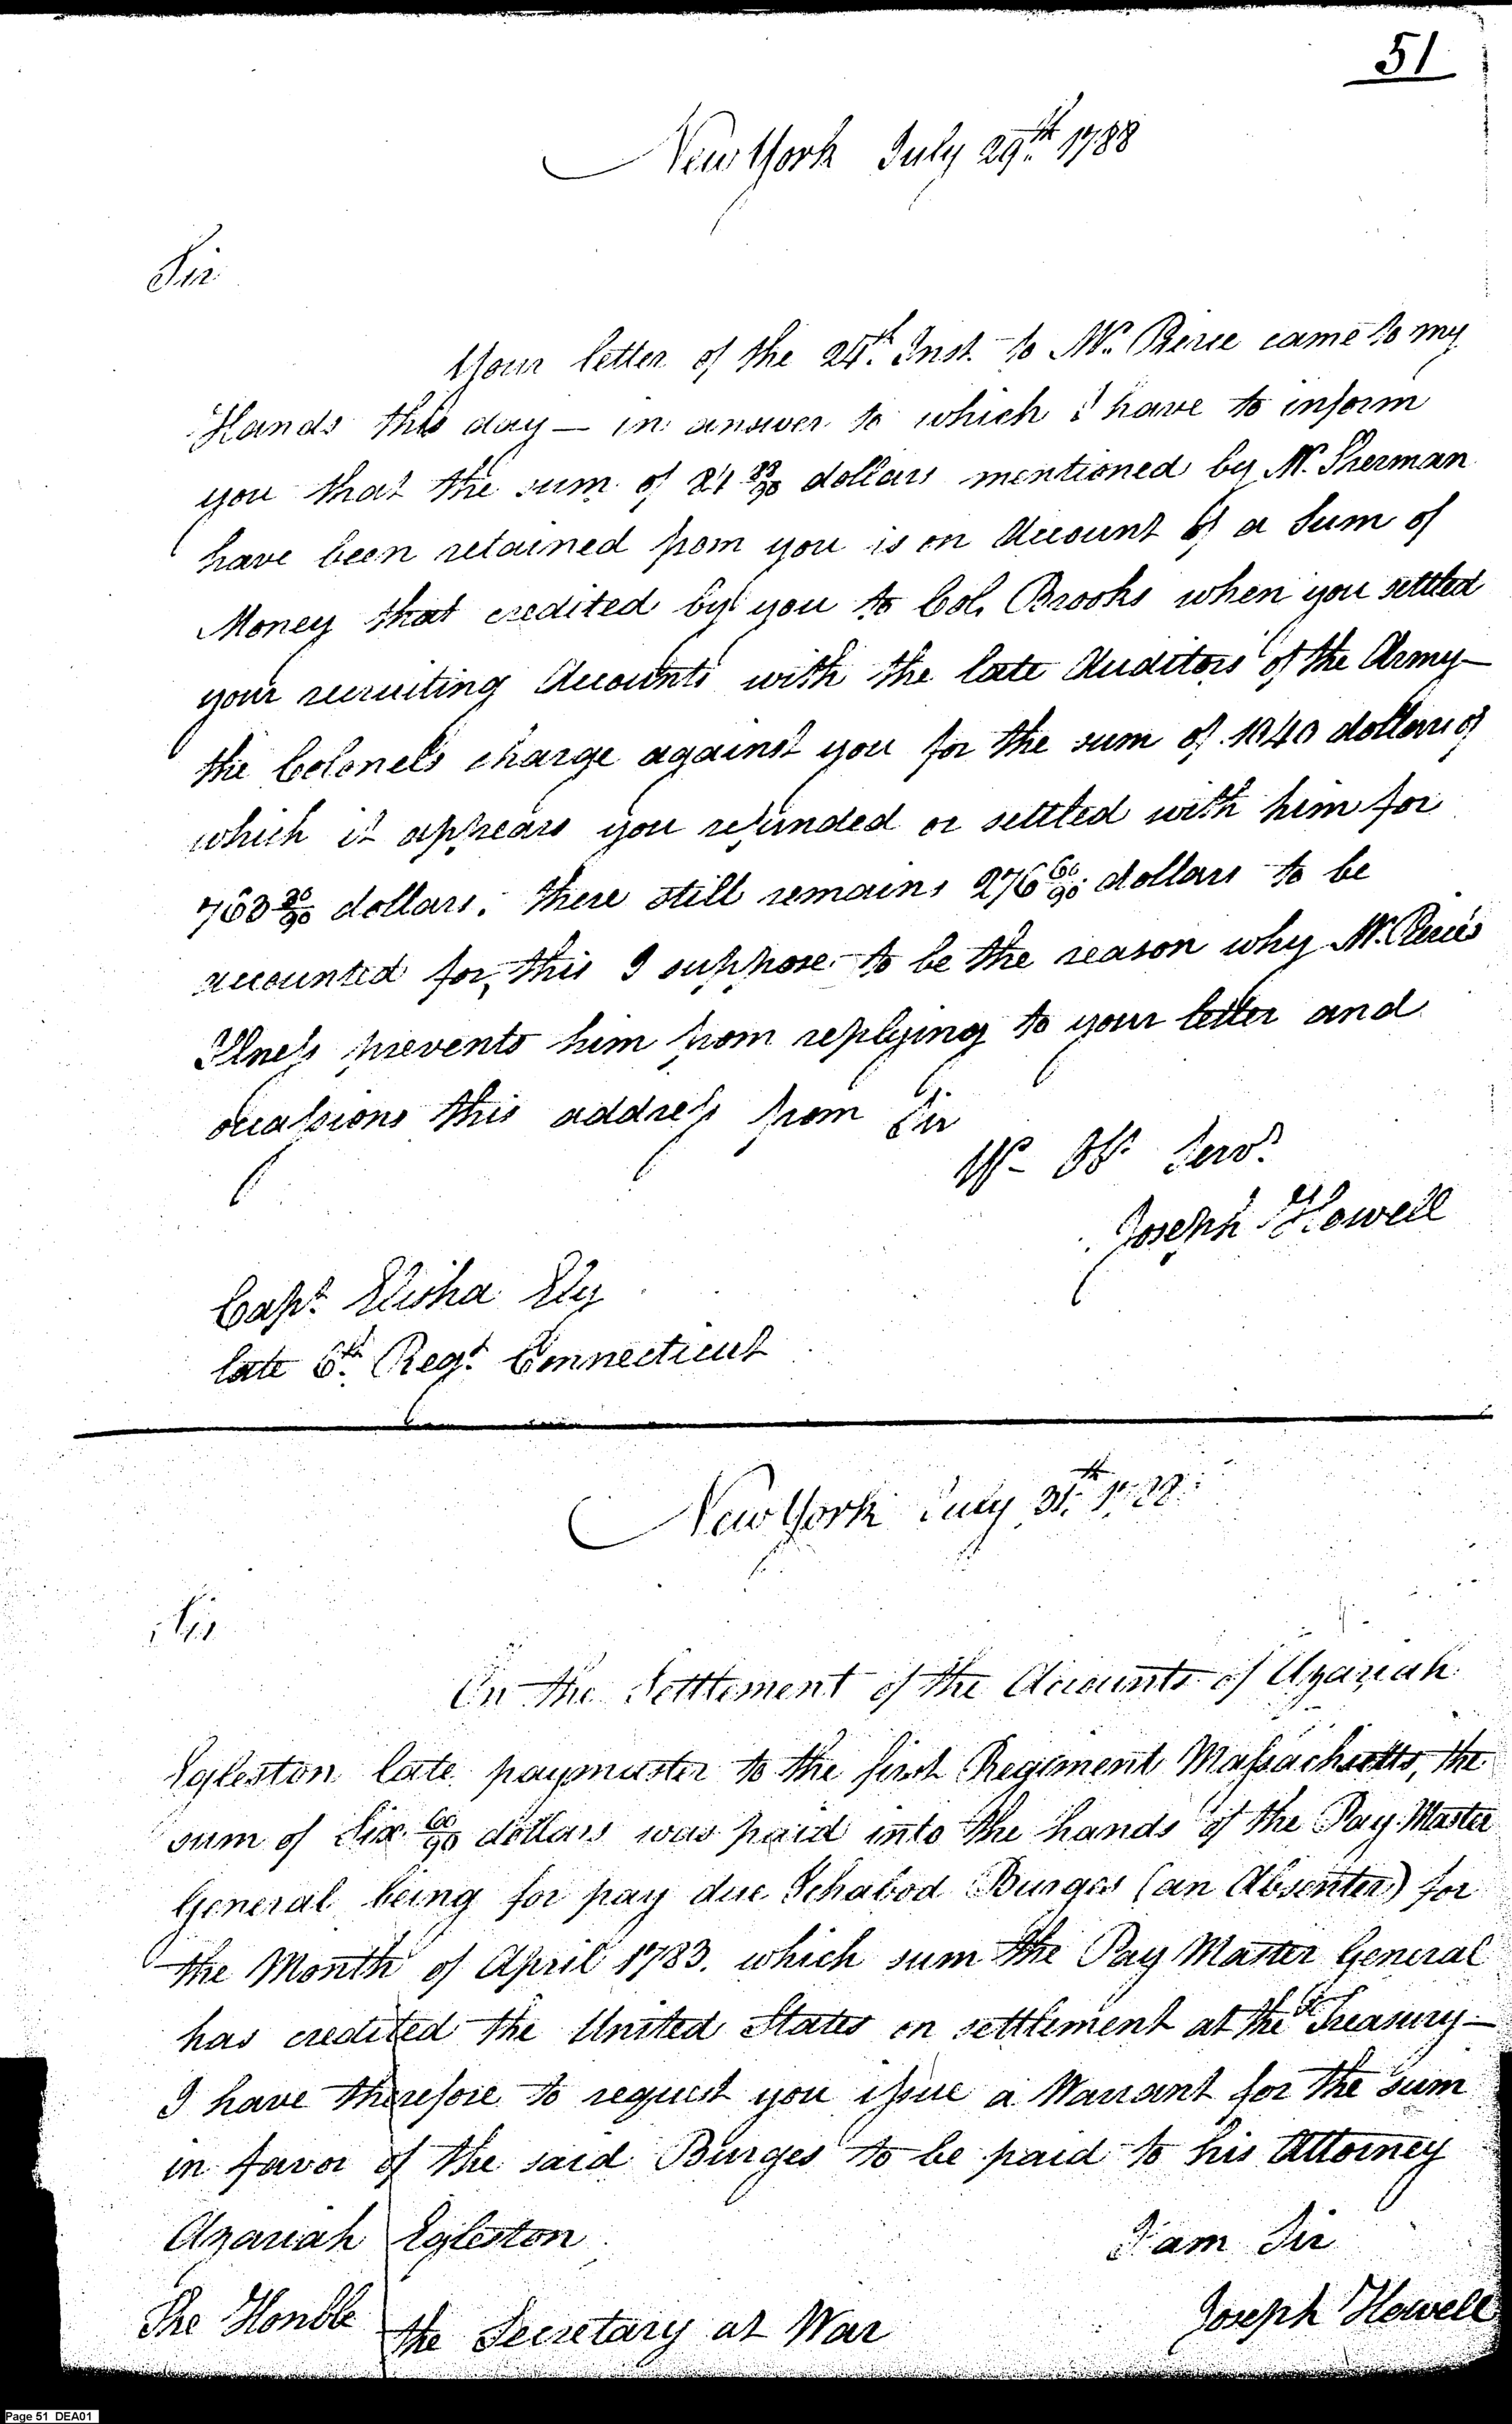 51
New York July 29th 1788
Sir
Your letter of the 24th Inst. to Mr. Pierce came to my
Hands this day — in answer to which I have to inform
you that the sum of 24 /90 dollars mentioned by Mr. Sherman
have been retained from you is on Account of a Sum of
Money that credited by you to Col. Brooks when you settled
your recruiting Accounts with the late Auditors of the Army —
the Colonels charge against you for the sum of 1040 dollars of
which it appears you refunded or settled with him for
763 30/90 dollars. there still remains 276 60/90 dollars to be
accounted for, this I suppose to be the reason why Mr. Pierces
Ilness prevents him from replying to your letter and
occassions this address from Sir
Yr Obt Servt
Joseph Howell
Capt. Elisha Ely
late 6th Regt. Connecticut
New York July 31th 1788
Sir
On the Settlement of the Accounts of Azariah
Egleston late paymaster to the first Regiment Massachsetts, the
sum of Six 60/90 dollars was paid into the hands of the Pay Master
General being for pay due Ichabod Burges (an Absentee) for
the Month of April 1783. which sum the Pay Master General
has credited the United States on settlement at the Treasury —
I have therefore to request you issue a Warrant for the sum
in favor of the said Burges to be paid to his Attorney
Azariah Egleston
I am Sir
Joseph Howell
The Honble the Secretary at War
Page 51 DEA01